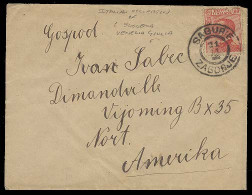 Gospod
Ivan Sabec
Dimandville
Vijoming Bx 35
Nort.
Amerika
SAGURIE
ZAGORJE